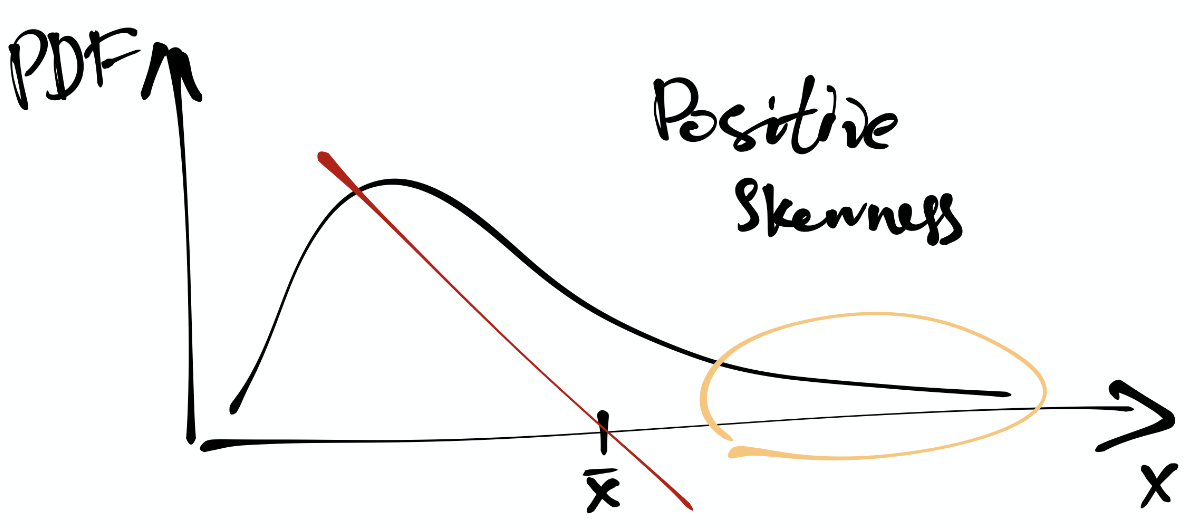 PDF
Positive
Skewness
x̄
x